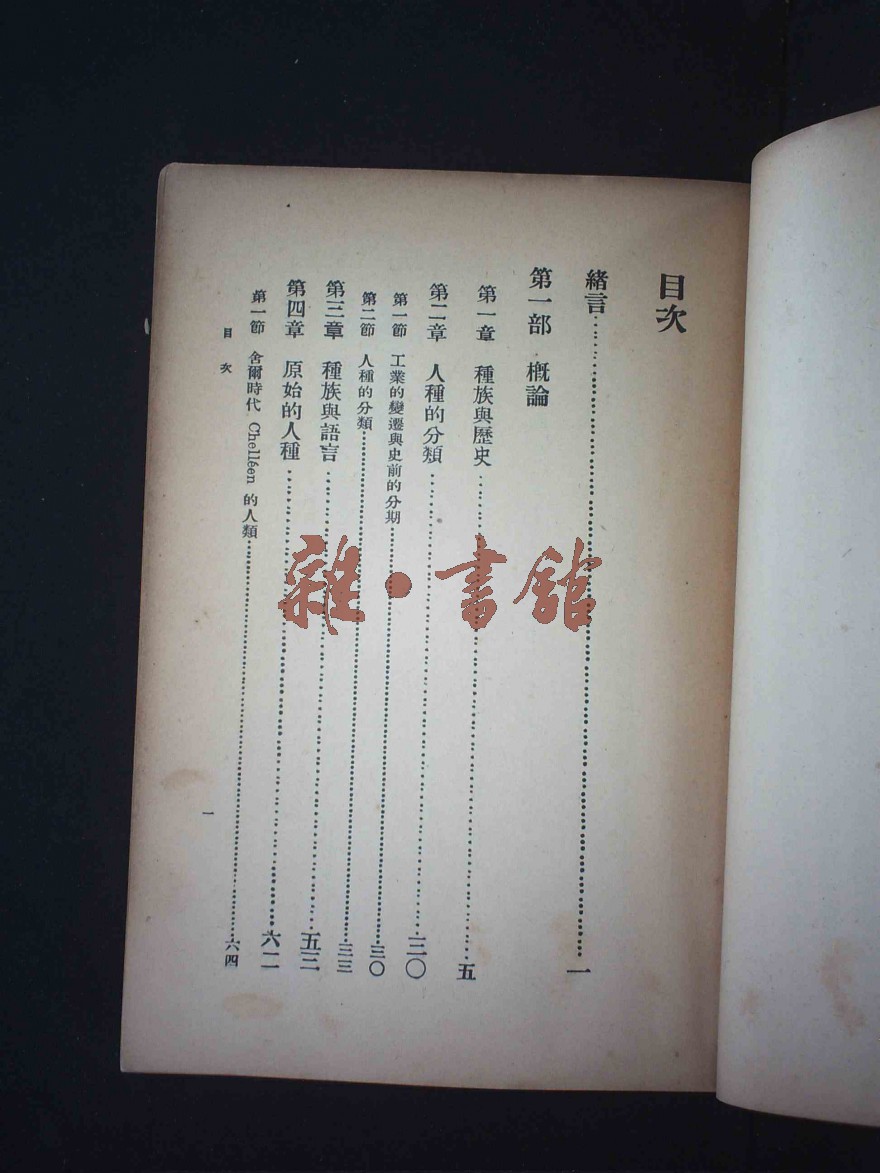 目次
緒言……一
第一部 概論
第一章 種族與歷史……五
第二章 人種的分類……三〇
第一節 工業的變遷與史前的分期……三〇
第二節 人種的分類……三三
第三章 種族與語言……五三
第四章 原始的人種……六二
第一節 舍爾時代 Chelléen 的人類……六四
目次
一
雜·書館